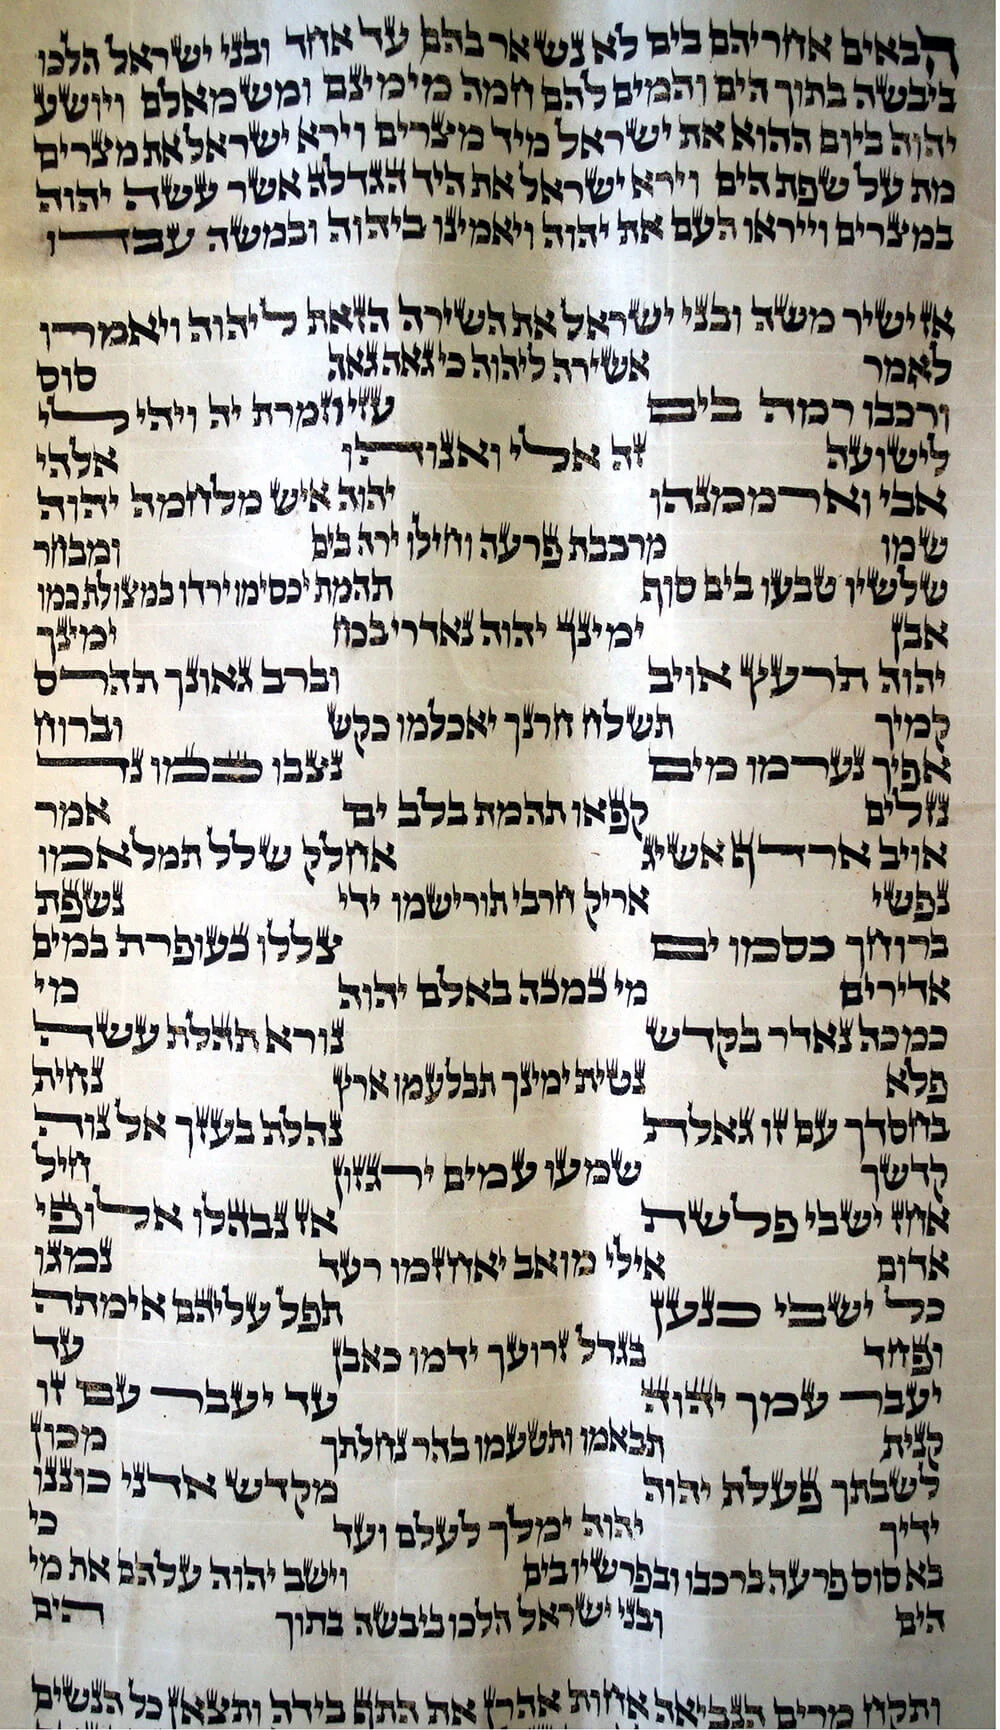 הבאים אחריהם בים לא נשאר בהם עד אחד ובני ישראל הלכו
ביבשה בתוך הים והמים להם חמה מימינם ומשמאלם ויושע
יהוה ביום ההוא את ישראל מיד מצרים וירא ישראל את מצרים
מת על שפת הים וירא ישראל את היד הגדלה אשר עשה יהוה
במצרים וייראו העם את יהוה ויאמינו ביהוה ובמשה עבדו
אז ישיר משה ובני ישראל את השירה הזאת ליהוה ויאמרו
לאמר אשירה ליהוה כי גאה גאה סוס
ורכבו רמה בים עזי וזמרת יה ויהי לי
לישועה זה אלי ואנוהו אלהי
אבי וארממנהו יהוה איש מלחמה יהוה
שמו מרכבת פרעה וחילו ירה בים ומבחר
שלשיו טבעו בים סוף תהמת יכסימו ירדו במצולת כמו
אבן ימינך יהוה נאדרי בכח ימינך
יהוה תרעץ אויב וברב גאונך תהרס
קמיך תשלח חרנך יאכלמו כקש וברוח
אפיך נערמו מים נצבו כמו נד
נזלים קפאו תהמת בלב ים אמר
אויב ארדף אשיג אחלק שלל תמלאמו
נפשי אריק חרבי תורישמו ידי נשפת
ברוחך כסמו ים צללו כעופרת במים
אדירים מי כמכה באלם יהוה מי
כמכה נאדר בקדש נורא תהלת עשה
פלא נטית ימינך תבלעמו ארץ נחית
בחסדך עם זו גאלת נהלת בעזך אל נוה
קדשך שמעו עמים ירגזון חיל
אחז ישבי פלשת אז נבהלו אלופי
אדום אילי מואב יאחזמו רעד נמגו
כל ישבי כנען תפל עליהם אימתה
ופחד בגדל זרועך ידמו כאבן עד
יעבר עמך יהוה עד יעבר עם זו
קנית תבאמו ותטעמו בהר נחלתך מכון
לשבתך פעלת יהוה מקדש אדני כוננו
ידיך יהוה ימלך לעלם ועד כי
בא סוס פרעה ברכבו ובפרשיו בים וישב יהוה עלהם את מי
הים ובני ישראל הלכו ביבשה בתוך הים
ותקח מרים הנביאה אחות אהרן את התף בידה ותצאן כל הנשים